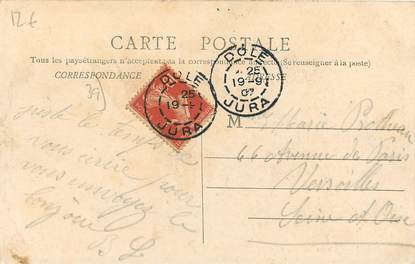 12 €
CARTE POSTALE
Tous les pays étrangers n'acceptent pas la correspondance au recto (Se renseigner à la poste)
CORRESPONDANCE
ADRESSE
39
DOLE
25
19-9
JURA
DOLE
25
19-9
07
JURA
M Marie
66 Avenue de Paris
Versailles
Seine et Oise
juste le temps de
vous écrire pour
vous envoyer le
bonjour